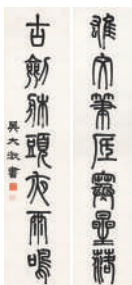 雄文筆底寒星落
古劍牀頭夜雨鳴
吳大澂書